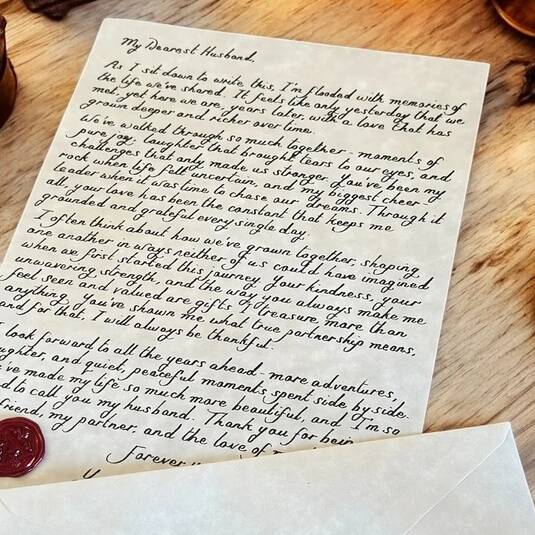 My Dearest Husband,
As I sit down to write this, I'm flooded with memories of
the life we've shared. It feels like only yesterday that we
met, yet here we are, years later, with a love that has
grown deeper and richer over time.
We've walked through so much together - moments of
pure joy, laughter that brought tears to our eyes, and
challenges that only made us stronger. You've been my
rock when life felt uncertain, and my biggest cheer
leader when it was time to chase our dreams. Through it
all, your love has been the constant that keeps me
grounded and grateful every single day.
I often think about how we've grown together, shaping
one another in ways neither of us could have imagined
when we first started this journey. Your kindness, your
unwavering strength, and the way you always make me
feel seen and valued are gifts I treasure more than
anything. You've shown me what true partnership means,
and for that, I will always be thankful.
look forward to all the years ahead - more adventures,
and quiet, peaceful moments spent side by side.
made my life so much more beautiful, and I'm so
to call you my husband. Thank you for
friend, my partner, and the love of
Forever